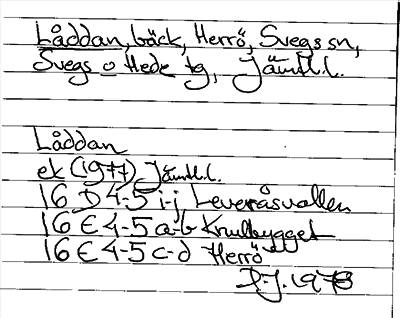 Låddan, bäck, Herrö, Svegs sn,
Svegs o Hede tg, Jämtl.l.
Låddan
ek (1977) Jämtl.l.
16 D 4-5 i-j Leveråsvallen
16 E 4-5 a-b Knulbygget
16 E 4-5 c-d Herrö
P.J. 1978